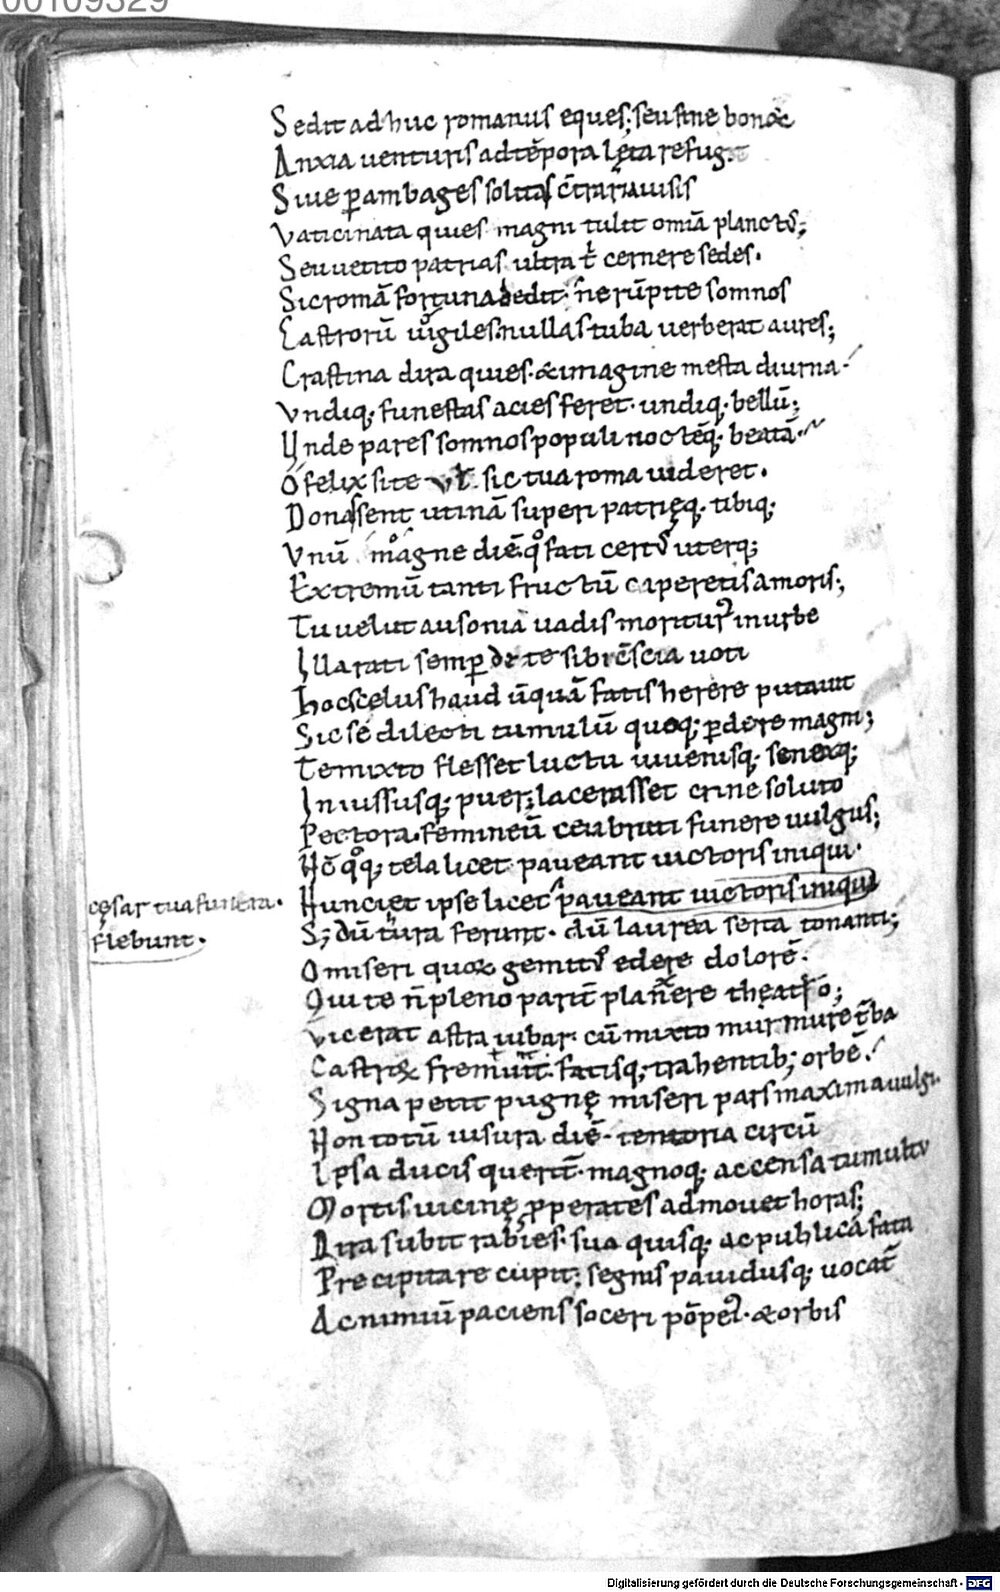 00109329
Sedit adhuc romanus eques; seu fine bonoꝝ
Anxia venturis ad tēpora lęta refugit
Siue ꝑ ambages solitas c̄traria uisis
Vaticinata quies magni tulit omiā planctus;
Seu uetito patrias ultra t̄ cernere sedes.
Sic romā fortuna dedit. ne rūpite somnos
Castrorū uigiles. nullas tuba uerberet aures;
Crastina dira quies. & imagine mesta diurna.
Vndiq; funestas acies feret. undiq; bellū;
Unde pares somnos populi noctēq; beatā.
O felix si te ul̄ sic tua roma uideret.
Donassent utinā superi patrięq; tibiq;
Vnū magne diē qͦ fati certus uterq;
Extremū tanti fructū caperetis amoris;
Tu uelut ausonia uadis moriturꝰ in urbe
Illa rati semꝑ de te sibi c̄scia uoti
Hoc scelus haud ūquā fatis herere putauit
Sic se dilecti tumulū quoq; ꝑdere magni;
Te mixto flesset luctu iuuenisq; senexq;
Iniussusq; puer; lacerasset crine soluto
Pectora. femineū ceu bruti funere uulgus;
Nc̄ qͦq; tela licet paueant uictoris iniqui.
cęsar tua funera.
flebunt.
Nunciet ipse licet paueant uictoris iniqui
S; dū tura ferunt. dū laurea serta tonanti;
O miseri quoꝝ gemitus edere dolorē.
Qui te n̄ pleno parit̄ planxere theatro;
Vicerat astra iubar. cū mixto murmure t̄ba
Castroꝝ fremuit. fatisq; trahentib; orbē.
Signa petit pugnę miseri pars maxima uulgi.
Non totū uisura diē. tentoria circū
Ipsa ducis querit̄. magnoq; accensa tumultu
Mortis uicinę ꝓperates admouet horas;
Dira subit rabies. sua quisq; ac publica fata
Precipitare cupit; segnis pauidusq; uocat̄
Ac nimiū paciens soceri pōpeiꝰ. & orbis
Digitalisierung gefördert durch die Deutsche Forschungsgemeinschaft - DFG